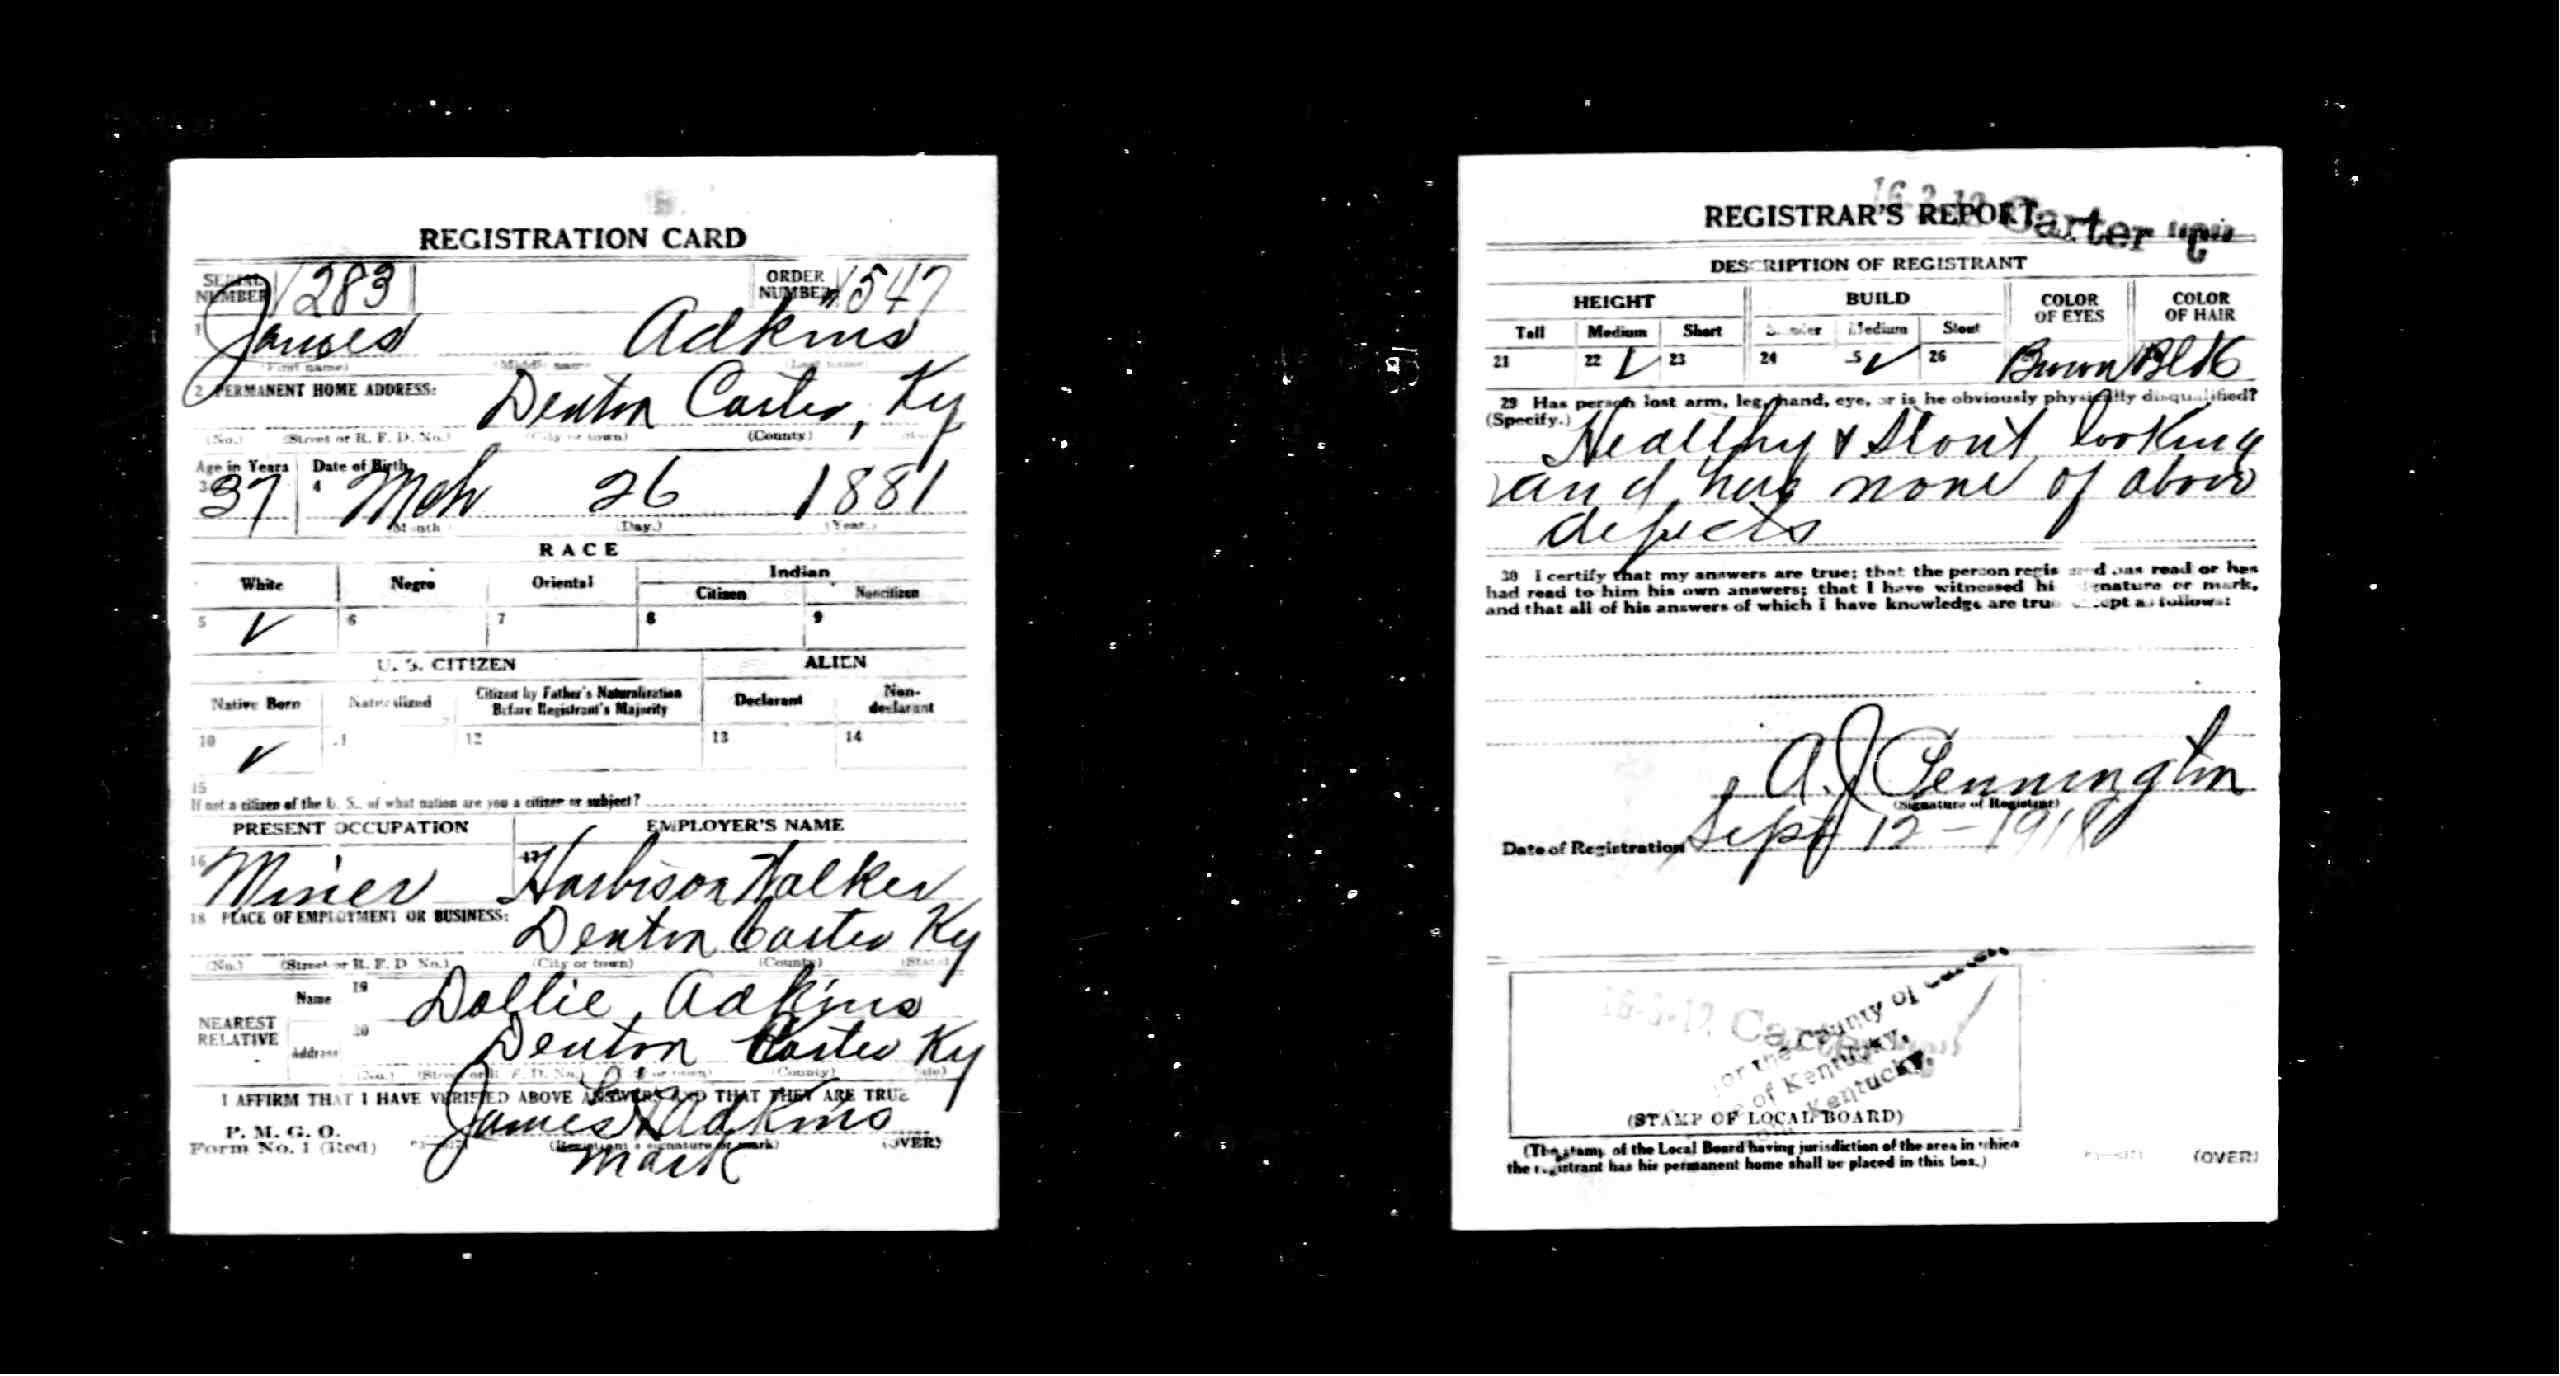 REGISTRATION CARD
SERIAL NUMBER 1283 ORDER NUMBER 1547
1 James Adkins
(First name) (Middle name) (Last name)
2 PERMANENT HOME ADDRESS:
Denton Carter, Ky
(No.) (Street or R. F. D. No.) (City or town) (County)
Age in Years Date of Birth
3 37 4 Mch 26 1881
(Month) (Day.) (Year.)
RACE
White Negro Oriental Indian
Citizen Noncitizen
5 ✓ 6 7 8 9
U. S. CITIZEN ALIEN
Native Born Naturalized Citizen by Father's Naturalization Before Registrant's Majority Declarant Non-declarant
10 ✓ 11 12 13 14
15
If not a citizen of the U. S., of what nation are you a citizen or subject?
PRESENT OCCUPATION EMPLOYER'S NAME
16 Miner 17 Harbison Walker
18 PLACE OF EMPLOYMENT OR BUSINESS:
Denton Carter Ky
(No.) (Street or R. F. D. No.) (City or town) (County) (State)
NEAREST RELATIVE
Name 19 Dollie Adkins
Address 20 Denton Carter Ky
(No.) (Street or R. F. D. No.) (City or town) (County) (State)
I AFFIRM THAT I HAVE VERIFIED ABOVE ANSWERS AND THAT THEY ARE TRUE
his
P. M. G. O. James X Adkins
Form No. 1 (Red) (Registrant's signature or mark) (OVER)
mark
REGISTRAR'S REPORT
16-3-12 Carter "C"
DESCRIPTION OF REGISTRANT
HEIGHT BUILD COLOR OF EYES COLOR OF HAIR
Tall Medium Short Slender Medium Stout
21 22 ✓ 23 24 25 ✓ 26 Brown Blk
29 Has person lost arm, leg, hand, eye, or is he obviously physically disqualified?
(Specify.) Healthy & Stout looking
and has none of above
defects
30 I certify that my answers are true; that the person registered has read or has
had read to him his own answers; that I have witnessed his signature or mark,
and that all of his answers of which I have knowledge are true, except as follows:
A. J. Pennington
(Signature of Registrar)
Date of Registration Sept 12 - 1918
Carter
for the County of Carter
of Kentucky,
Kentucky.
(STAMP OF LOCAL BOARD)
(The stamp of the Local Board having jurisdiction of the area in which
the registrant has his permanent home shall be placed in this box.)
(OVER)